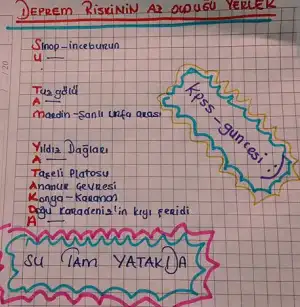 DEPREM RİSKİNİN AZ OLDUĞU YERLER
Sinop-inceburun
U -
Tuz gölü
A -
Mardin-Şanlı urfa arası
Yıldız Dağları
A -
Taşeli Platosu
Anamur Çevresi
Konya-Karaman
Doğu Karadeniz'in kıyı şeridi
A -
kpss-guncesi :)
SU TAM YATAKDA